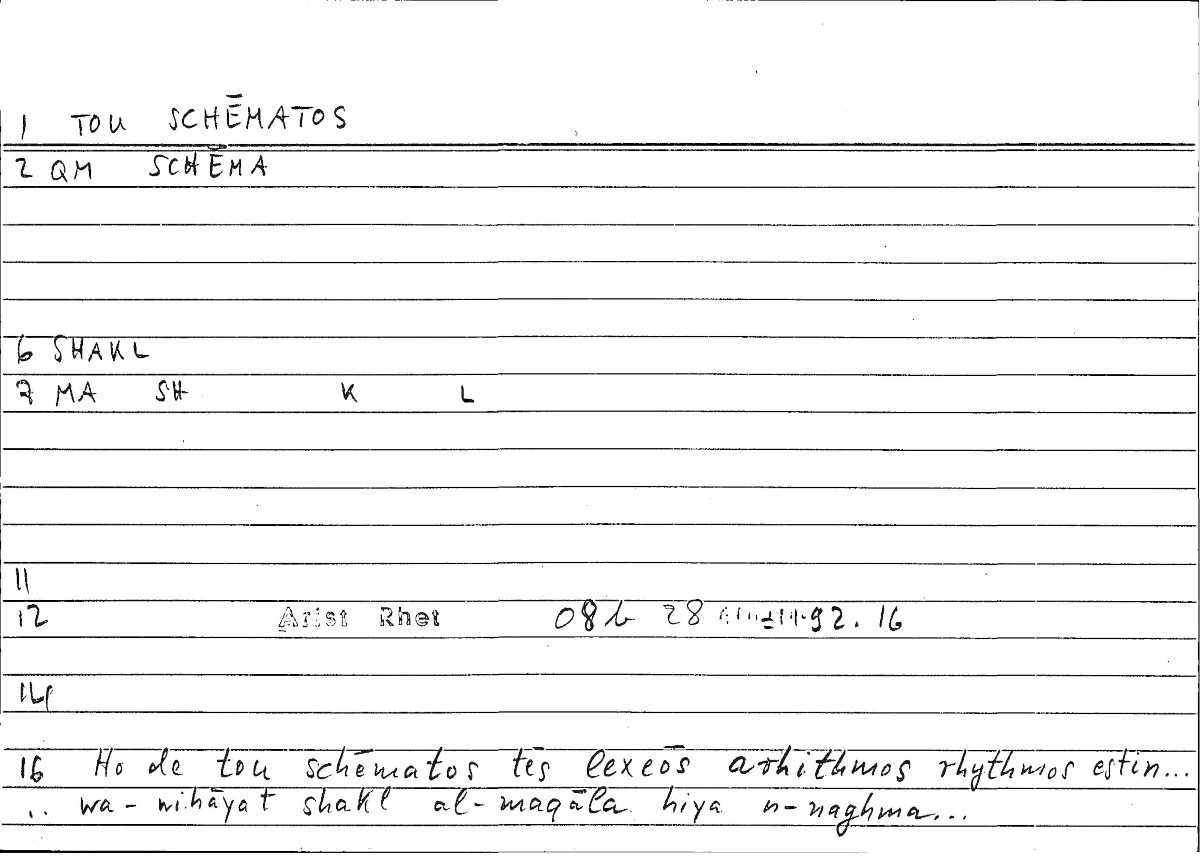 1 TOU SCHĒMATOS
2 QM SCHĒMA
6 SHAKL
7 MA SH K L
11
12 Arist Rhet 08b 28 92.16
14
16 Ho de tou schēmatos tēs lexeōs arhithmos rhythmos estin...
.. wa-nihāyat shakl al-maqāla hiya n-naghma...